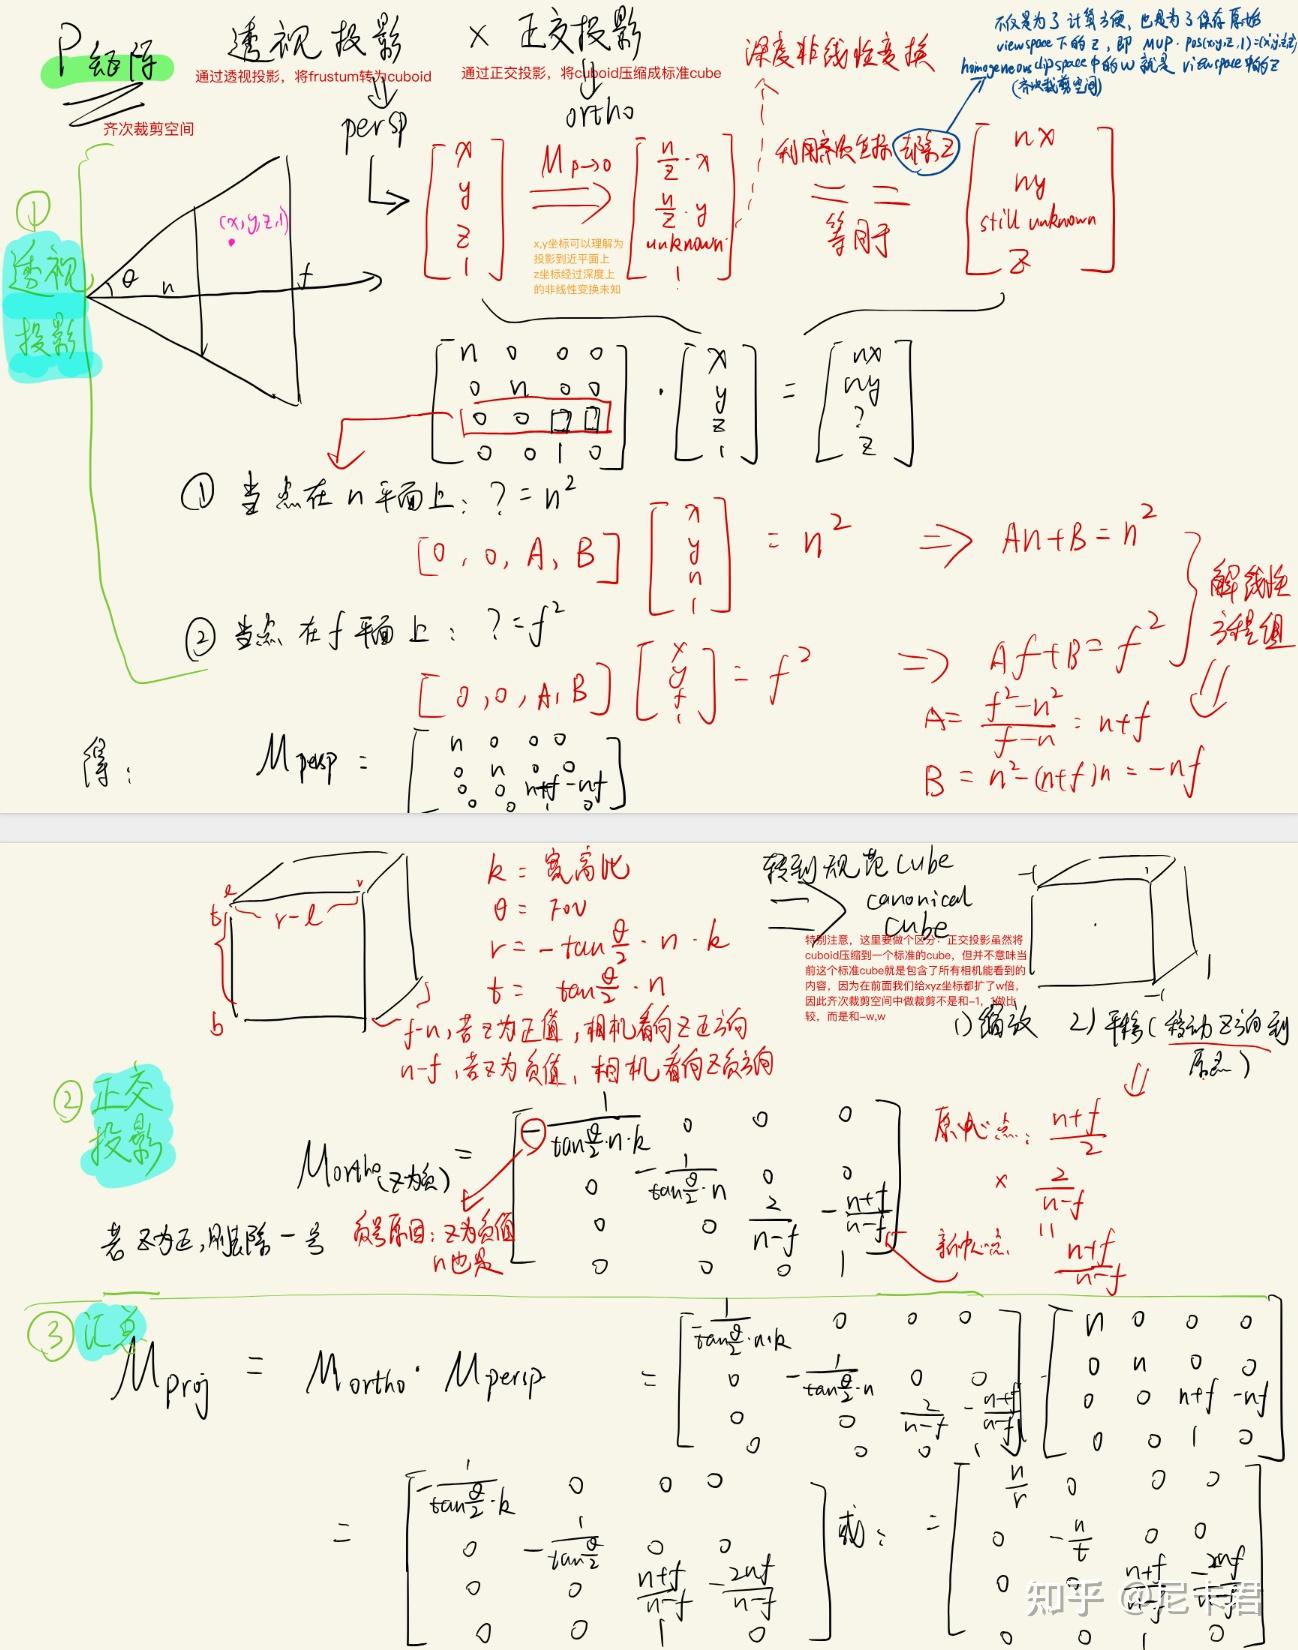 P矩阵
透视投影 × 正交投影
通过透视投影，将frustum转为cuboid
通过正交投影，将cuboid压缩成标准cube
persp
ortho
齐次裁剪空间
深度非线性变换
不仅是为了计算方便，也是为了保存原始
viewspace下的z，即 MVP·pos(x,y,z,1)=(x,y,z,z)
homogeneous clip space中的w就是viewspace中的z
(齐次裁剪空间)
① 透视
投影
(x,y,z,1)
θ n f
x
y
z
1
M p→o
n/z · x
n/z · y
unknown
1
x,y坐标可以理解为
投影到近平面上
z坐标经过深度上
的非线性变换未知
利用齐次坐标去除z
==
等同于
nx
ny
still unknown
z
n 0 0 0
0 n 0 0
0 0 □ □
0 0 1 0
·
x
y
z
1
=
nx
ny
?
z
① 当点在n平面上：?=n²
[0, 0, A, B]
x
y
n
1
= n² => An+B=n²
② 当点在f平面上：?=f²
[0, 0, A, B]
x
y
f
1
= f² => Af+B=f²
解线性
方程组
A= (f²-n²)/(f-n) = n+f
B = n²-(n+f)n = -nf
得：
Mpersp =
n 0 0 0
0 n 0 0
0 0 n+f -nf
0 0 1 0
l r
t r-l
b
k = 宽高比
θ = FOV
r = -tan θ/2 · n · k
t = tan θ/2 · n
f-n，若z为正值，相机看向z正方向
n-f，若z为负值，相机看向z负方向
转到规范cube
canonical
cube
特别注意，这里要做个区分：正交投影虽然将
cuboid压缩到一个标准的cube，但并不意味当
前这个标准cube就是包含了所有相机能看到的
内容，因为在前面我们给xyz坐标都扩了w倍，
因此齐次裁剪空间中做裁剪不是和-1，1做比
较，而是和-w,w
-1 1
-1 1
1) 缩放 2) 平移(移动z方向到
原点)
② 正交
投影
Mortho(z为负) =
-1/(tan θ/2 · n · k) 0 0 0
0 -1/(tan θ/2 · n) 0 0
0 0 2/(n-f) -(n+f)/(n-f)
0 0 0 1
若z为正，则去除-号
负号原因：z为负值
n也是
原中心点：(n+f)/2
× 2/(n-f)
=
新中心点 (n+f)/(n-f)
③ 汇总
Mproj = Mortho · Mpersp =
-1/(tan θ/2 · n·k) 0 0 0
0 -1/(tan θ/2 · n) 0 0
0 0 2/(n-f) -(n+f)/(n-f)
0 0 0 1
·
n 0 0 0
0 n 0 0
0 0 n+f -nf
0 0 1 0
=
-1/(tan θ/2 · k) 0 0 0
0 -1/(tan θ/2) 0 0
0 0 (n+f)/(n-f) -2nf/(n-f)
0 0 1 0
或：=
n/r 0 0 0
0 -n/t 0 0
0 0 (n+f)/(n-f) -2nf/(n-f)
0 0 1 0
知乎 @尼卡君